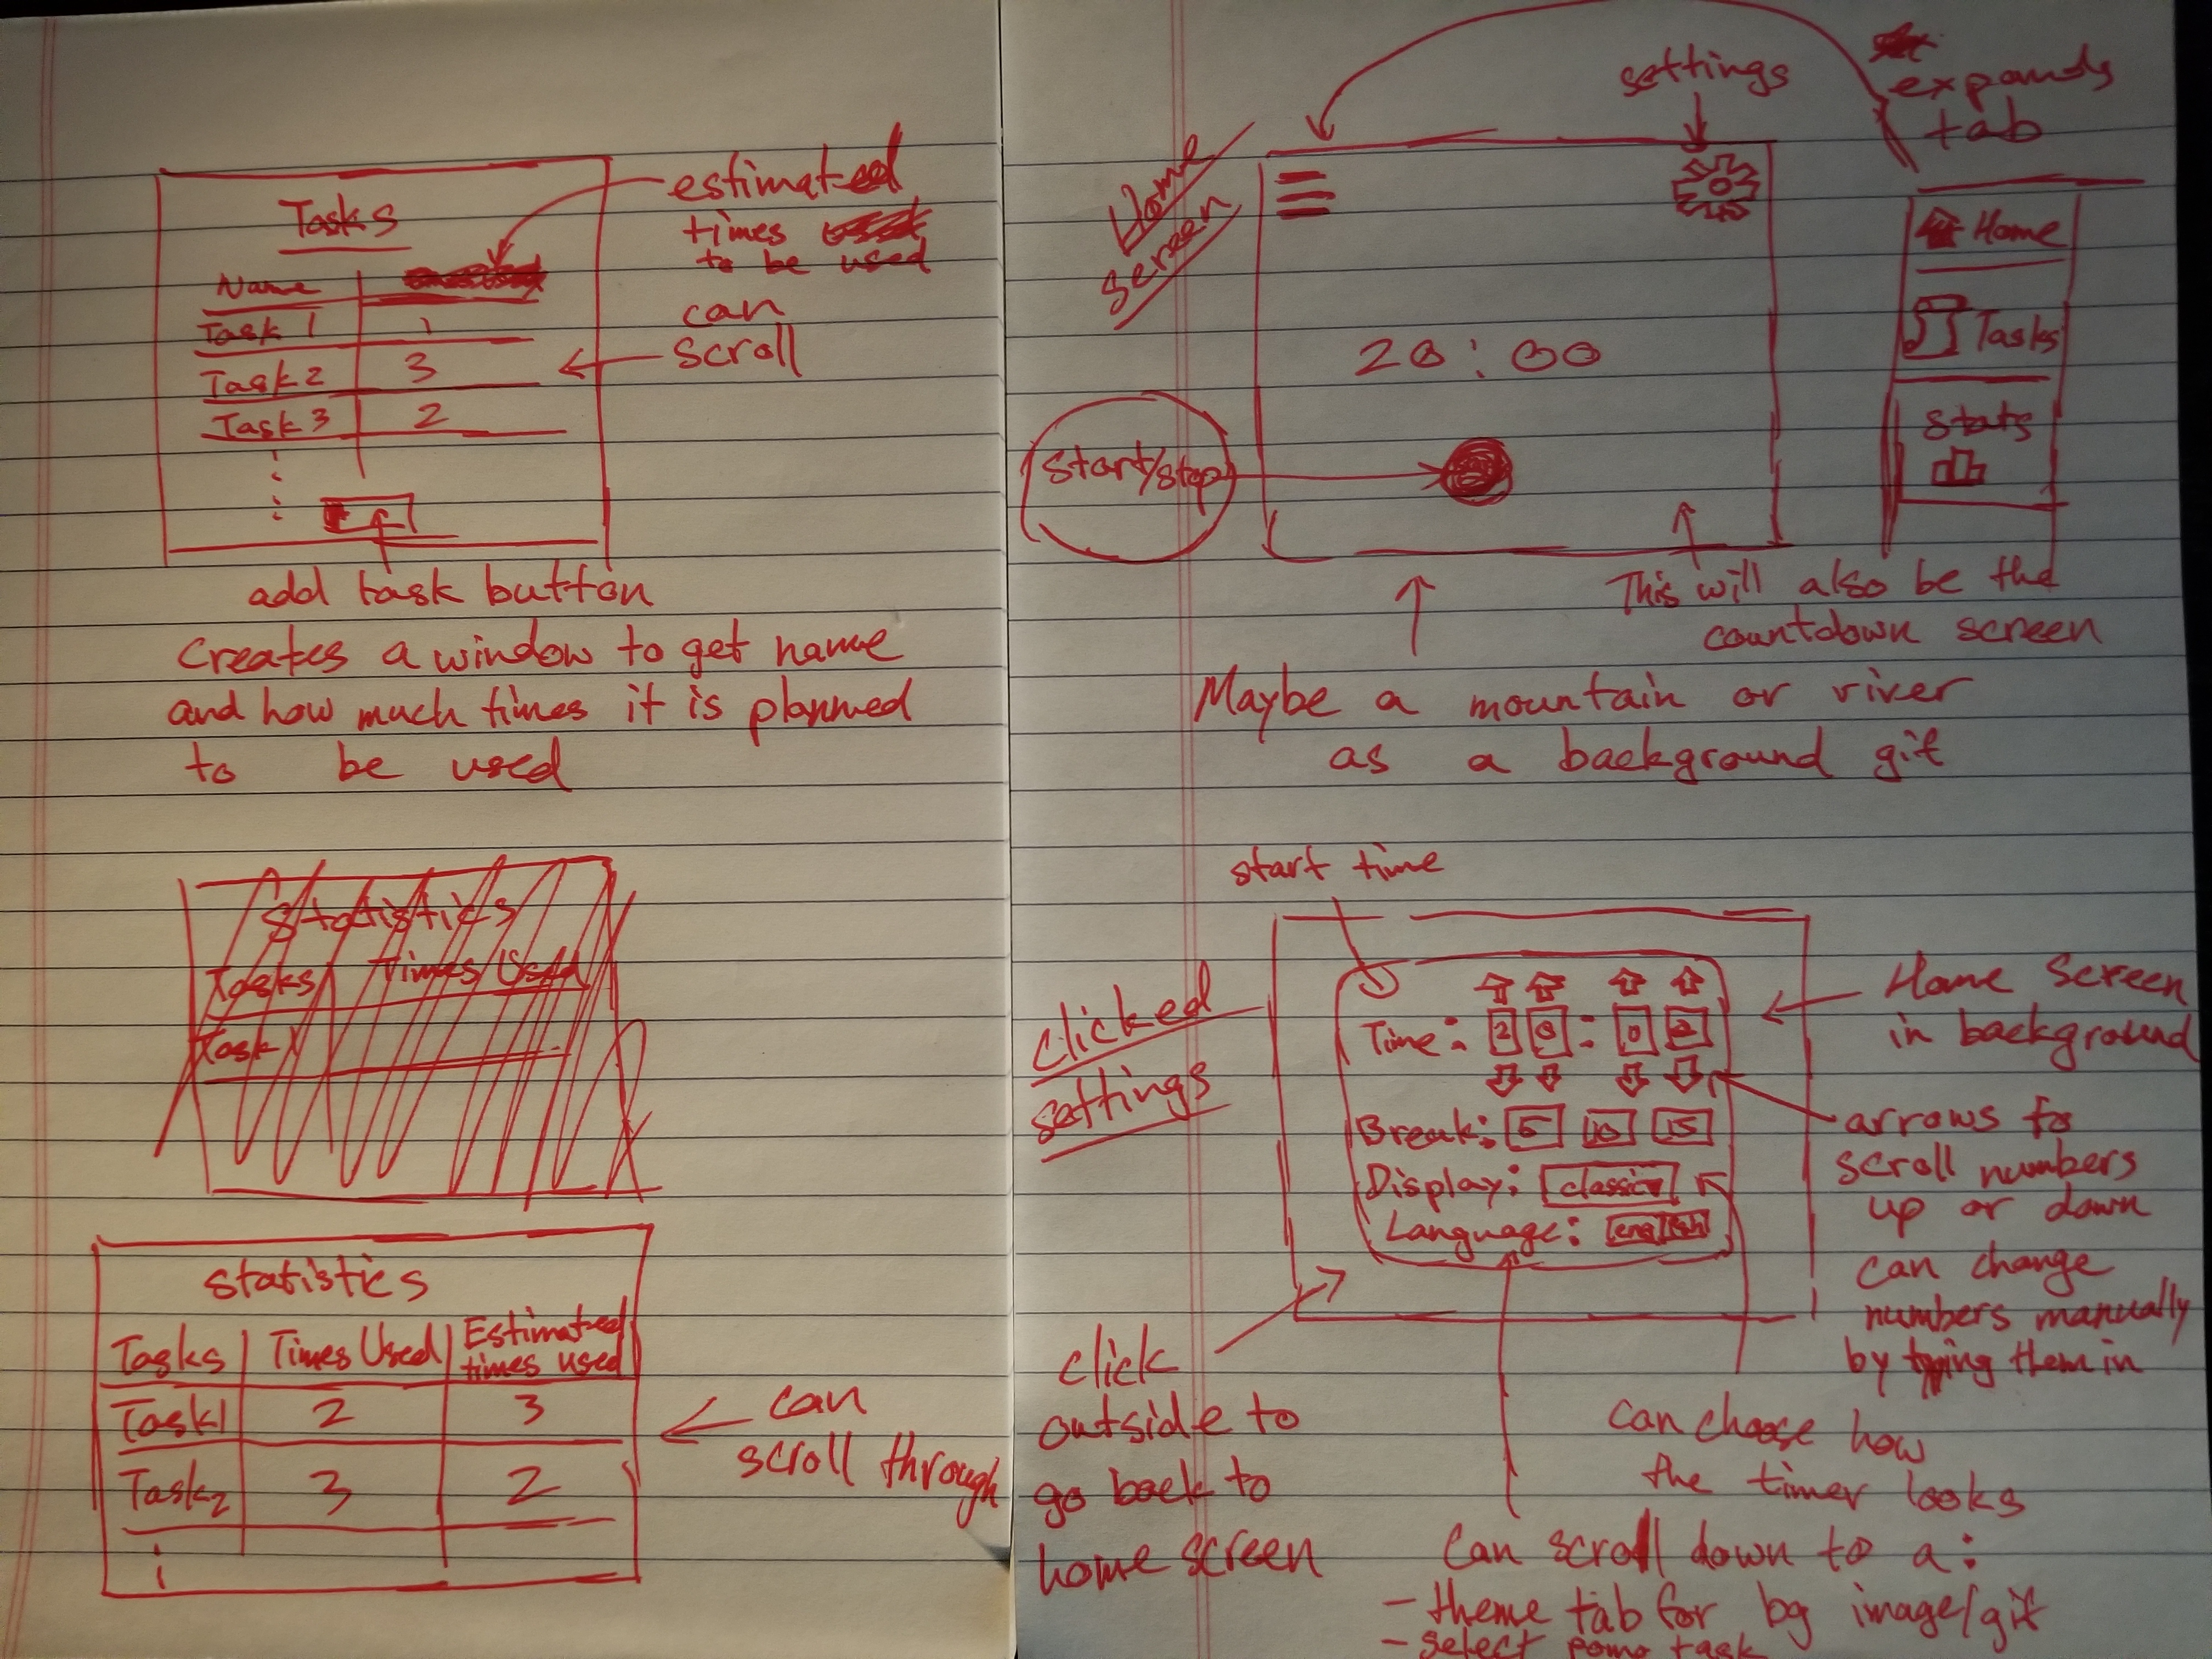 Tasks
Name
Task 1 1
Task 2 3
Task 3 2
estimated
times
to be used
can
scroll
add task button
Creates a window to get name
and how much times it is planned
to be used
Statistics
Tasks Times Used
Task 1
Statistics
Tasks Times Used Estimated
times used
Task1 2 3
Task2 3 2
can
scroll through
Home
Screen
settings
expands
tab
20:00
Start/stop
Home
Tasks
Stats
This will also be the
countdown screen
Maybe a mountain or river
as a background gif
start time
Clicked
settings
Time: 2 0 : 0 0
Break: 5 10 15
Display: classic
Language: english
Home Screen
in background
arrows to
scroll numbers
up or down
can change
numbers manually
by typing them in
click
outside to
go back to
home screen
can choose how
the timer looks
Can scroll down to a:
- theme tab for bg image/gif
- select pomo task